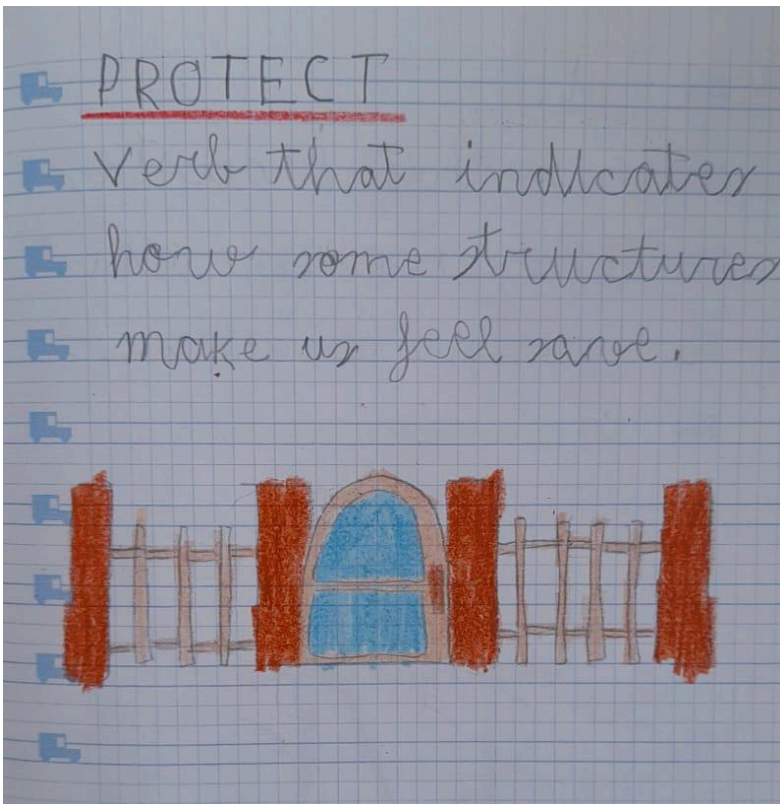 PROTECT
Verb that indicates
how some structures
make us feel save.